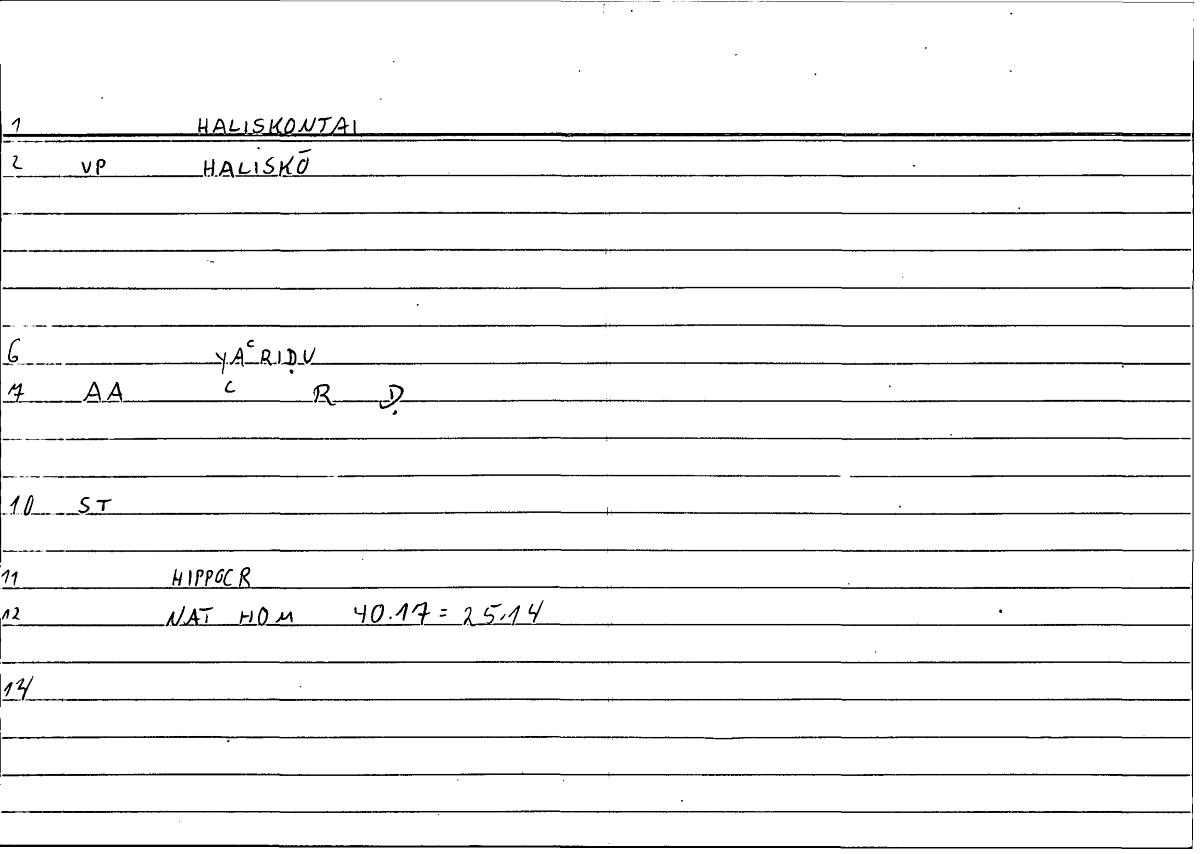 1 HALISKONTAI
2 VP HALISKŌ
6 YAᶜRIḌU
7 AA ᶜ R Ḍ
10 ST
11 HIPPOCR
12 NAT HOM 40.17 = 25.14
14